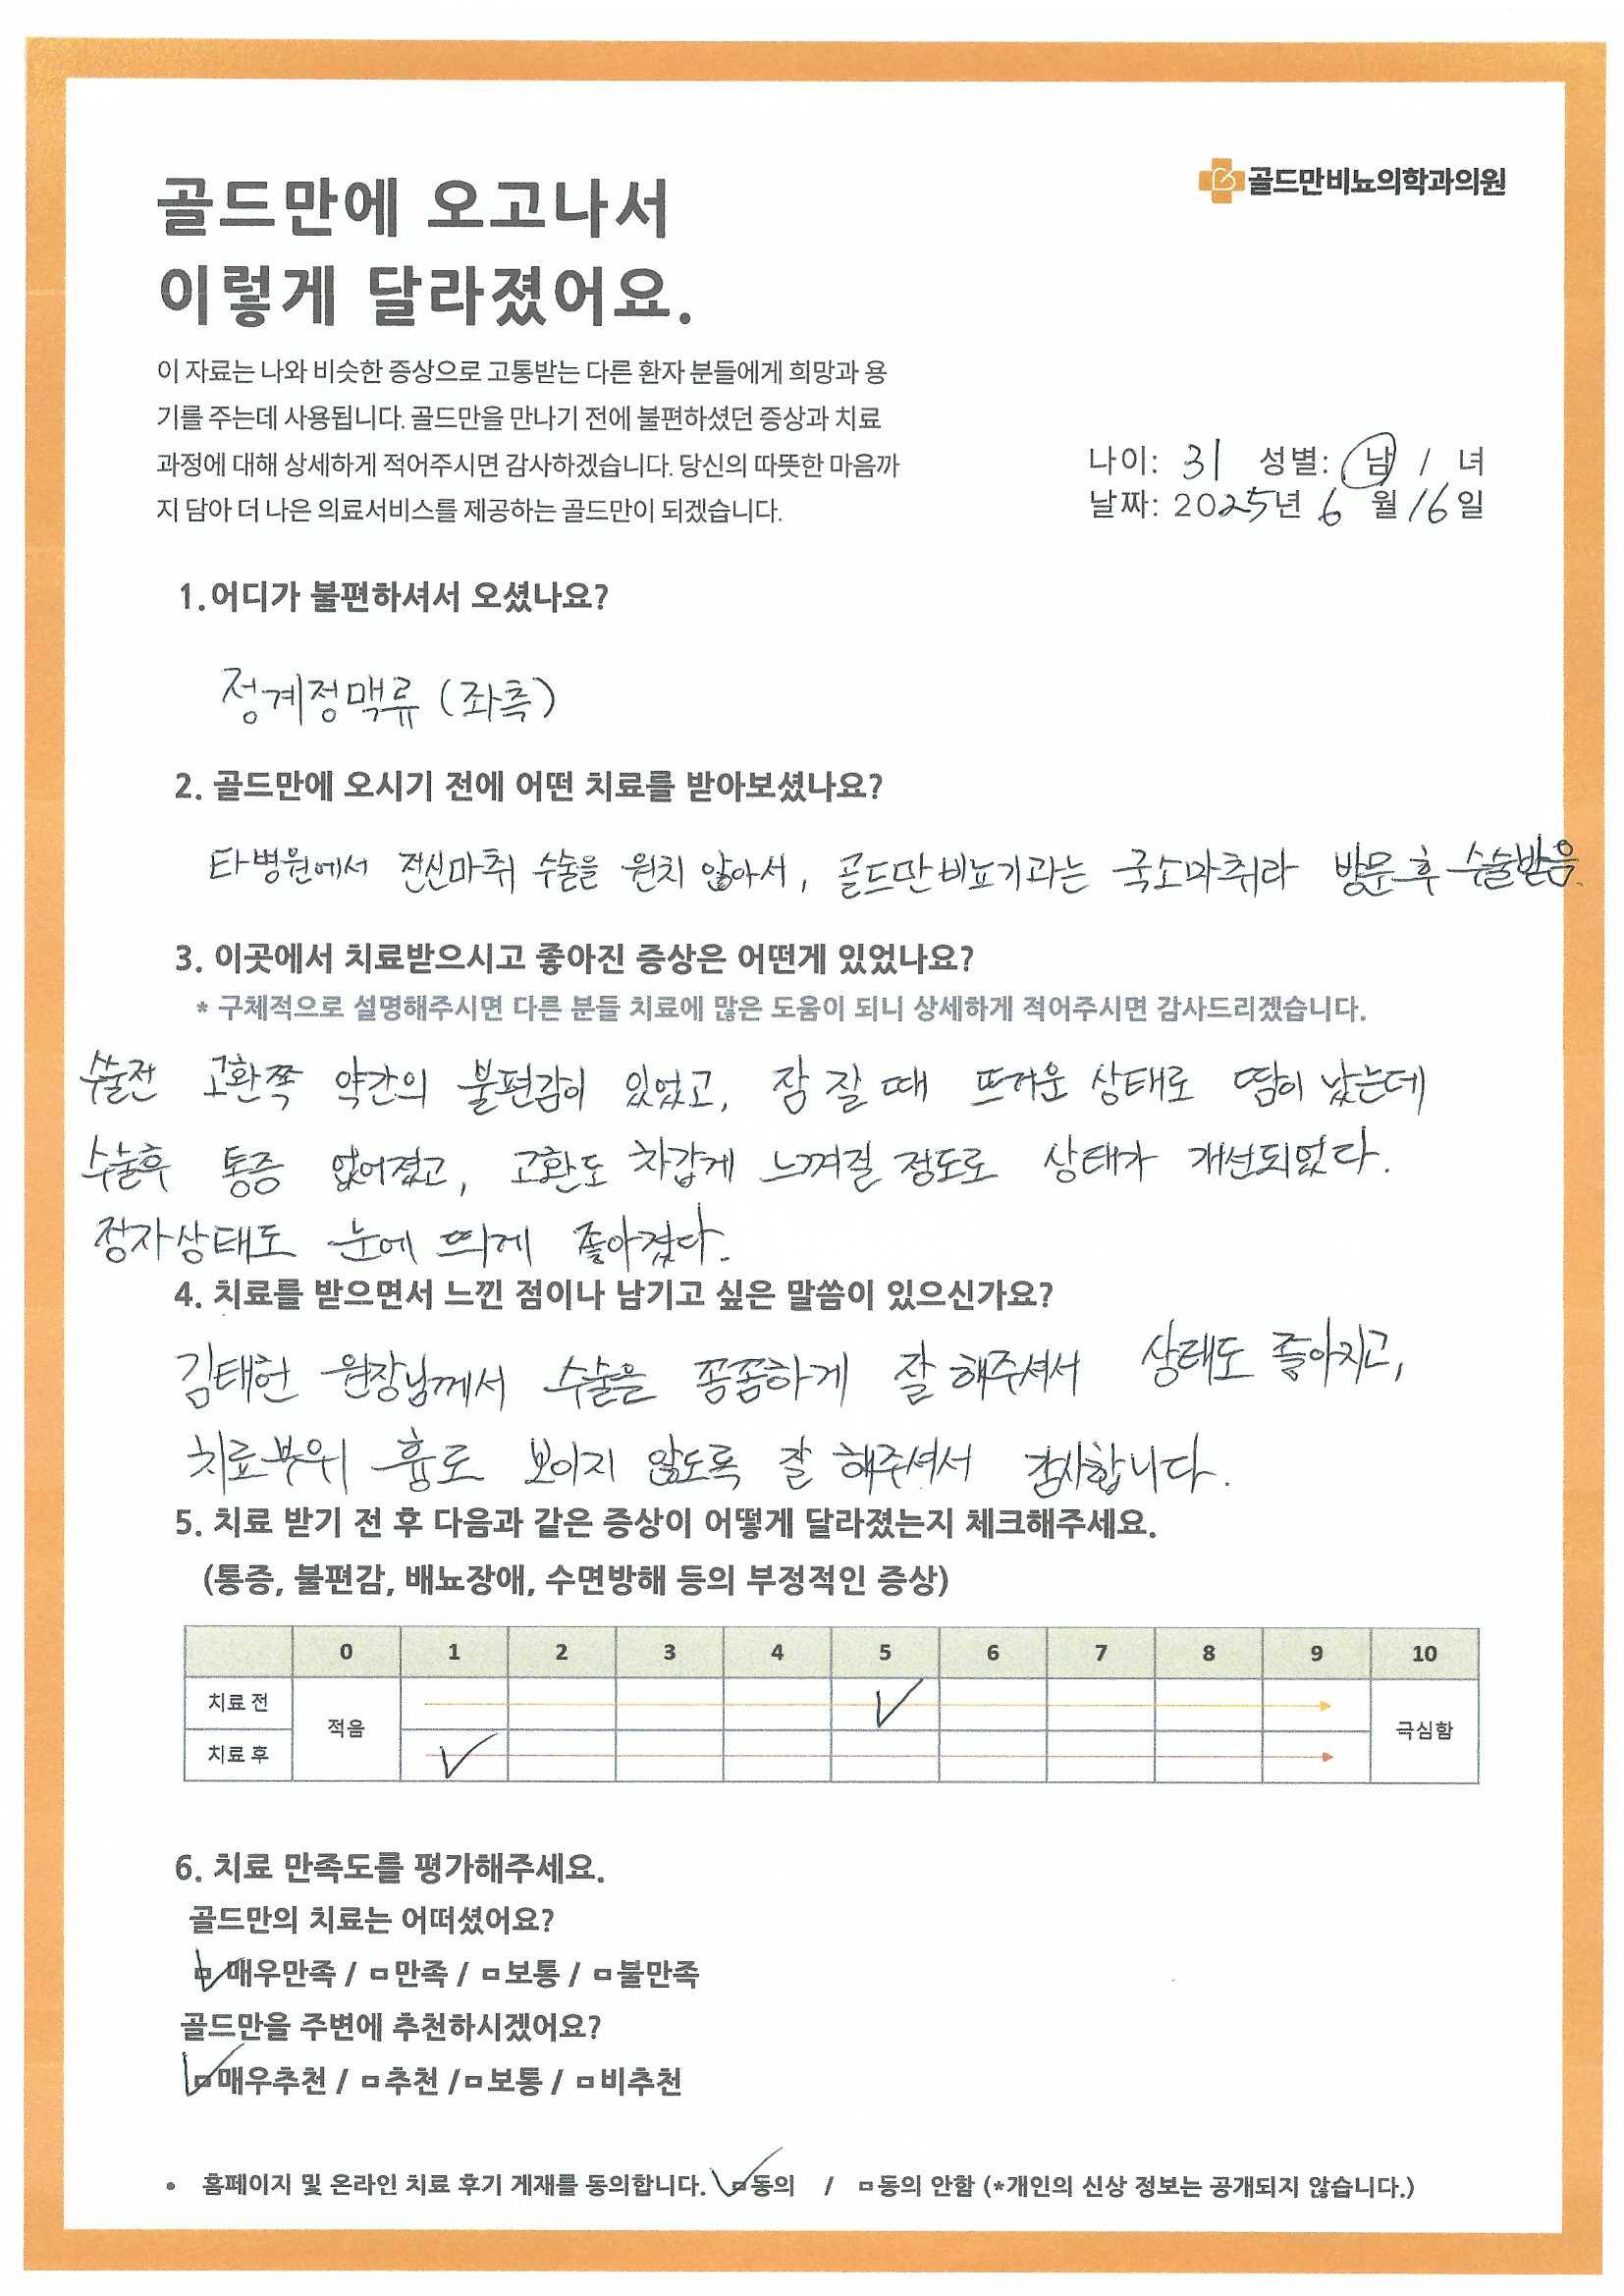 골드만비뇨의학과의원
골드만에 오고나서
이렇게 달라졌어요.
이 자료는 나와 비슷한 증상으로 고통받는 다른 환자 분들에게 희망과 용
기를 주는데 사용됩니다. 골드만을 만나기 전에 불편하셨던 증상과 치료
과정에 대해 상세하게 적어주시면 감사하겠습니다. 당신의 따뜻한 마음까
지 담아 더 나은 의료서비스를 제공하는 골드만이 되겠습니다.
나이: 31 성별: 남 / 녀
날짜: 2025년 6 월 16 일
1.어디가 불편하셔서 오셨나요?
정계정맥류 (좌측)
2. 골드만에 오시기 전에 어떤 치료를 받아보셨나요?
타병원에서 전신마취 수술을 원치 않아서, 골드만비뇨기과는 국소마취라 방문 후 수술받음.
3. 이곳에서 치료받으시고 좋아진 증상은 어떤게 있었나요?
* 구체적으로 설명해주시면 다른 분들 치료에 많은 도움이 되니 상세하게 적어주시면 감사드리겠습니다.
수술전 고환쪽 약간의 불편감이 있었고, 잠 잘 때 뜨거운 상태로 땀이 났는데
수술후 통증 없어졌고, 고환도 차갑게 느껴질 정도로 상태가 개선되었다.
정자상태도 눈에 띄게 좋아졌다.
4. 치료를 받으면서 느낀 점이나 남기고 싶은 말씀이 있으신가요?
김태헌 원장님께서 수술을 꼼꼼하게 잘 해주셔서 상태도 좋아지고,
치료부위 흉도 보이지 않도록 잘 해주셔서 감사합니다.
5. 치료 받기 전 후 다음과 같은 증상이 어떻게 달라졌는지 체크해주세요.
(통증, 불편감, 배뇨장애, 수면방해 등의 부정적인 증상)
0 1 2 3 4 5 6 7 8 9 10
치료 전
적음 극심함
치료 후
6. 치료 만족도를 평가해주세요.
골드만의 치료는 어떠셨어요?
매우만족 / □만족 / □보통 / □불만족
골드만을 주변에 추천하시겠어요?
매우추천 / □추천 /□보통 / □비추천
• 홈페이지 및 온라인 치료 후기 게재를 동의합니다. □동의 / □동의 안함 (*개인의 신상 정보는 공개되지 않습니다.)